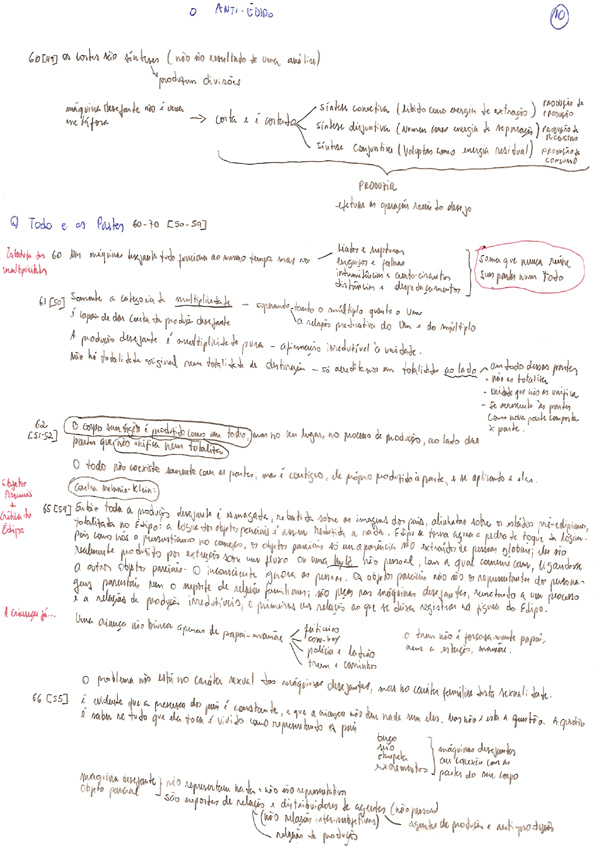 O ANTI-ÉDIPO
10
60 [49] os cortes são sínteses (não são resultado de uma análise)
produzem divisões
máquina desejante não é uma metáfora → corta e é cortada
síntese conectiva (libido como energia de extração) PRODUÇÃO DE PRODUÇÃO
síntese disjuntiva (numen como energia de separação) PRODUÇÃO DE REGISTRO
síntese conjuntiva (voluptas como energia residual) PRODUÇÃO DE CONSUMO
PRODUZIR
efetuam as operações reais do desejo
O Todo e as Partes 60-70 [50-59]
multiplicidades
60 Nas máquinas desejantes tudo funciona ao mesmo tempo mas no
hiatos e rupturas
enguiços e falhas
intermitências e curto-circuitos
distâncias e despedaçamentos
soma que nunca reúne suas partes num todo
61 [50] Somente a categoria de multiplicidade - superando tanto o múltiplo quanto o Uno
a relação predicativa do Uno e do múltiplo
é capaz de dar conta da produção desejante
A produção desejante é multiplicidade pura - afirmação irredutível à unidade.
Não há totalidade original nem totalidade de destinação - só acreditamos em totalidades ao lado
um todo dessas partes
- não as totaliza
- unidade que não as unifica
- se acrescenta às partes como nova parte composta à parte.
62 [51-52] O corpo sem órgãos é produzido como um todo, mas no seu lugar, no processo de produção, ao lado das
partes que não unifica nem totaliza
O todo não coexiste somente com as partes, mas é contíguo, ele próprio produzido à parte, e se aplicando a elas.
Contra Melanie Klein:
Objetos Parciais + crítica do Édipo
65 [53] Então toda a produção desejante é esmagada, rebatida sobre as imagens dos pais, alinhada sobre os estádios pré-edipianos,
totalizada no Édipo: a lógica dos objetos parciais é assim reduzida a nada. Édipo se torna agora a pedra de toque da lógica.
Pois como nós o pressentíamos no começo, os objetos parciais só em aparência são extraídos de pessoas globais; eles são
realmente produzidos por extração sobre um fluxo ou uma hylê não pessoal, com a qual comunicam, ligando-se
a outros objetos parciais. O inconsciente ignora as pessoas. Os objetos parciais não são os representantes dos persona-
gens parentais nem o suporte de relações familiares; são peças nas máquinas desejantes, remetendo a um processo
e a relações de produção irredutíveis, e primeiras em relação ao que se deixa registrar na figura do Édipo.
A criança já...
Uma criança não brinca apenas de papai-mamãe
feiticeiro
cow-boy
polícia e ladrão
trem e carrinhos
o trem não é forçosamente papai,
nem a estação, mamãe.
O problema não está no caráter sexual das máquinas desejantes, mas no caráter familiar desta sexualidade.
66 [55] É evidente que a presença dos pais é constante, e que a criança não tem nada sem eles. Mas não é esta a questão. A questão
é saber se tudo que ela toca é vivido como representando os pais
berço
seio
chupeta
excrementos
máquinas desejantes
em conexão com as
partes do seu corpo
máquina desejante
objeto parcial
não representam nada: não são representativos
são suportes de relação e distribuidores de agentes (não pessoas)
(não relações inter-subjetivas)
relações de produção
agentes de produção e anti-produção